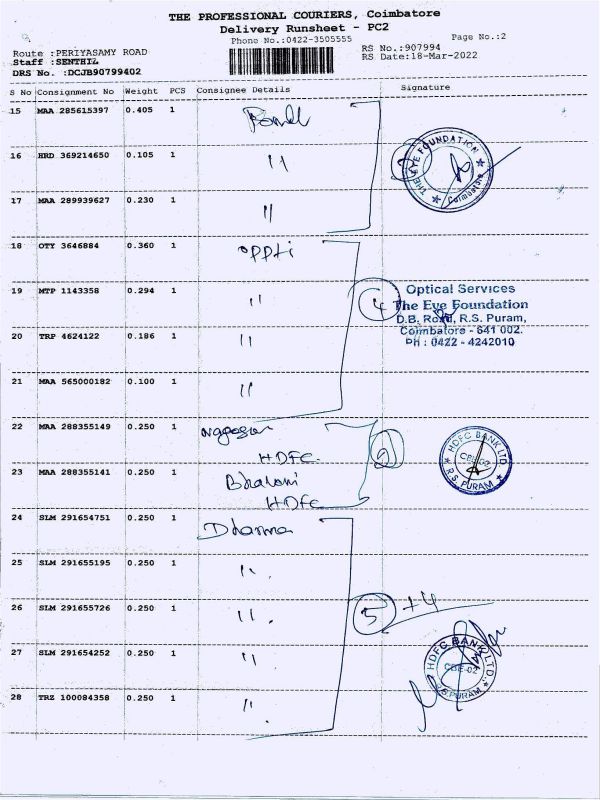 THE PROFESSIONAL COURIERS, Coimbatore
Delivery Runsheet - PC2
Phone No.:0422-3505555
Page No.:2
Route :PERIYASAMY ROAD
RS No.:907994
Staff :SENTHIL
RS Date:18-Mar-2022
DRS No. :DCJB90799402
S No Consignment No Weight PCS Consignee Details Signature
15 MAA 285615397 0.405 1
16 HRD 369214650 0.105 1 "
17 MAA 289939627 0.230 1 "
THE EYE FOUNDATION
Coimbatore
18 OTY 3646884 0.360 1 oppti
19 MTP 1143358 0.294 1 "
4
Optical Services
The Eye Foundation
D.B. Road, R.S. Puram,
Coimbatore - 641 002.
Ph : 0422 - 4242010
20 TRP 4624122 0.186 1 "
21 MAA 565000182 0.100 1 "
22 MAA 288355149 0.250 1
HDFC.
2
HDFC BANK LTD
CBE-02
R.S. PURAM
23 MAA 288355141 0.250 1 Bhavani
HDFC
24 SLM 291654751 0.250 1 Dharma
25 SLM 291655195 0.250 1 "
26 SLM 291655726 0.250 1 "
5 +4
27 SLM 291654252 0.250 1 "
HDFC BANK LTD.
CBE-02
R.S. PURAM
28 TRZ 100084358 0.250 1 "